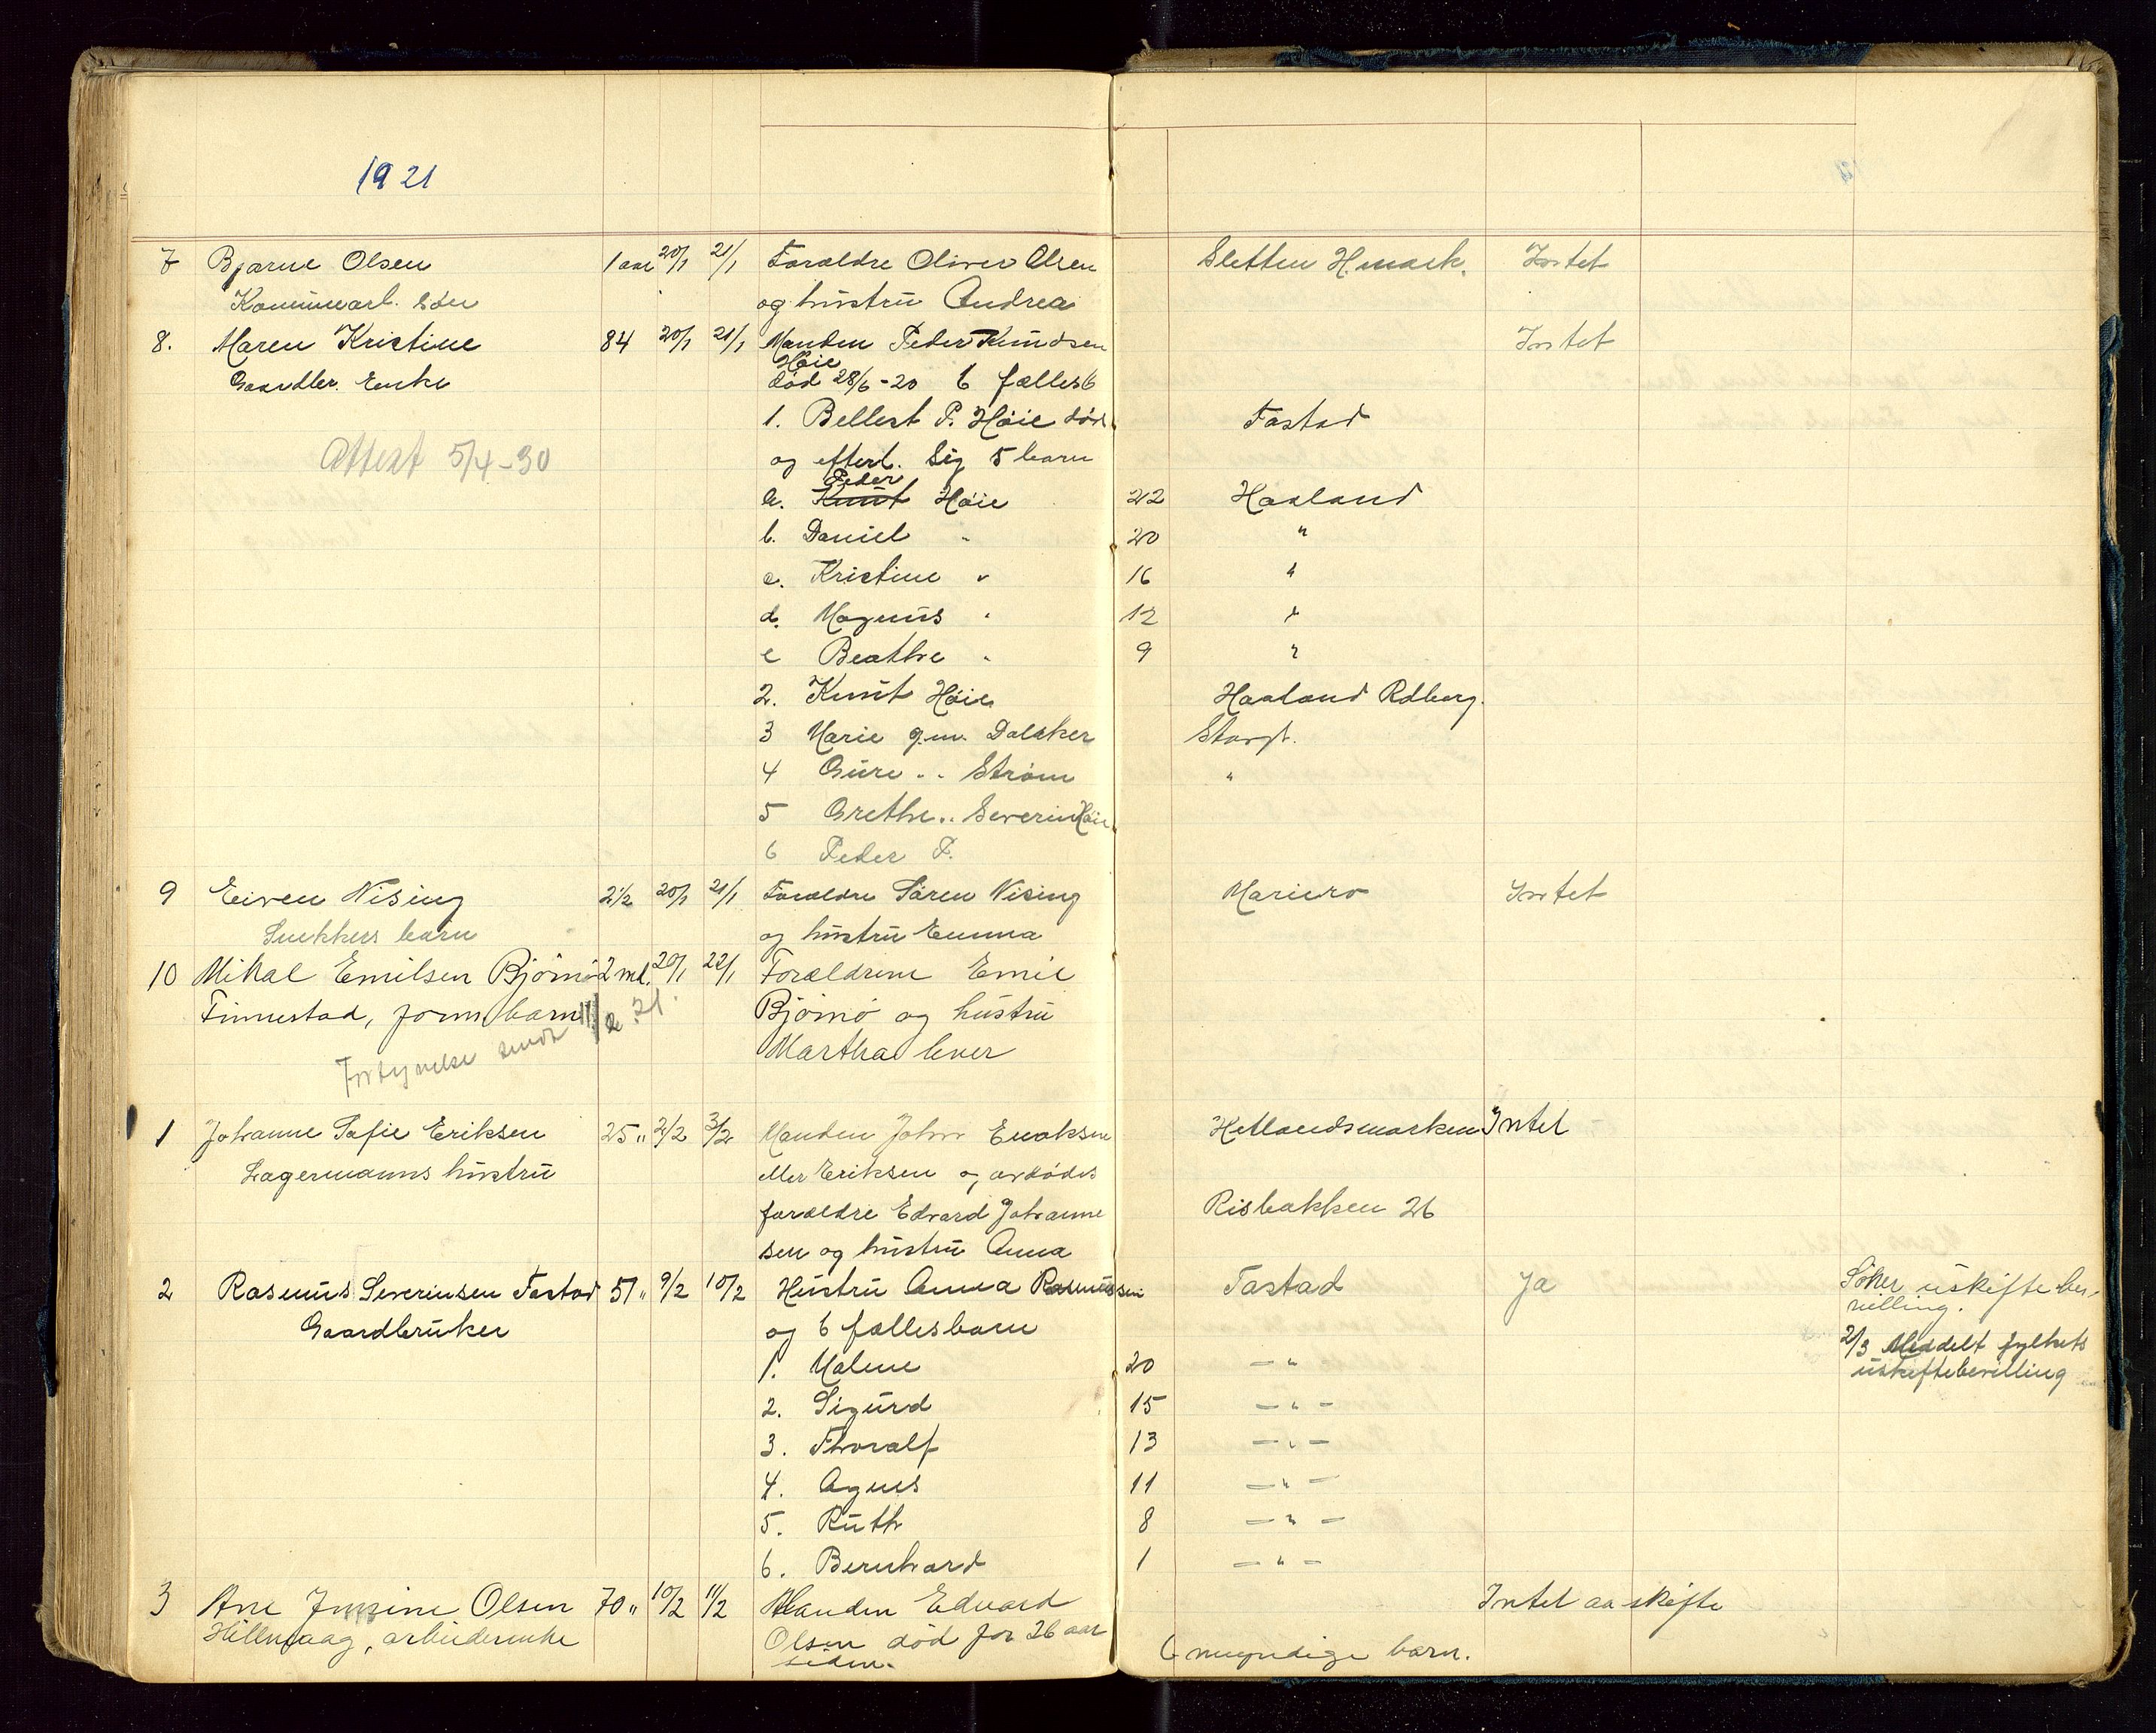 1921
7 Bjarne Olsen 1 aar 20/1 21/1 Forældre Oliver Olsen Sletten H.mark. Intet
Kommuearb. søn og hustru Andrea
8. Maren Kristine 84 20/1 21/1 Manden Peder Knudsen Intet
Høie
Gaardbr. Enke død 28/6-20 6 fælles b
1. Bellest P. Høie død Tastad
Attest 5/4-30 og efterl. sig 5 barn
Peder
a. Knut Høie 22 Haaland
b. Daniel " 20 "
c. Kristine " 16 "
d. Magnus " 12 "
e Beathe " 9 "
2. Knut Høie Haaland Rdberg.
3 Marie g.m. Dalaker Stavgr.
4 Gure " " Strøm "
5 Grethe " " Severin Høie
6 Peder P.
9 Eiven Nising 2 1/2 20/1 21/1 Forældre Søren Nising Mariero Intet
Snekkers barn og hustru Emma
10 Mikal Emilsen Bjørnø 2 md. 20/1 22/1 Forældrene Emil
Finnestad, form barn Bjørnø og hustru
11/2 21. Martha lever
sendt
1 Johanne Sofie Eriksen 25 " 2/2 3/2 Manden John Enoksen Hetlandsmarken Intet
Lagermanns hustru eller Eriksen og avdødes
forældre Edvard Johanne Risbakken 26
sen og hustru Anna
2 Rasmus Severinsen Tastad 51 " 9/2 10/2 Hustru Anna Rasmussen Tastad Ja Søker uskiftebe-
villing.
Gaardbruker og 6 fællesbarn 2/3 Meddelt fylkets
1. Malene 20 - " uskiftebevilling
2. Sigurd 15 - " -
3. Thoralf 13 - " -
4. Agnes 11 - " -
5. Ruth 8 - " -
6. Bernhard 1 - " -
3 Ane Olsen 70 " 10/2 11/2 Manden Edvard Intet aa skifte
Hillevaag, arbeiderenke Olsen død for 26 aar
siden. 6 myndige barn.